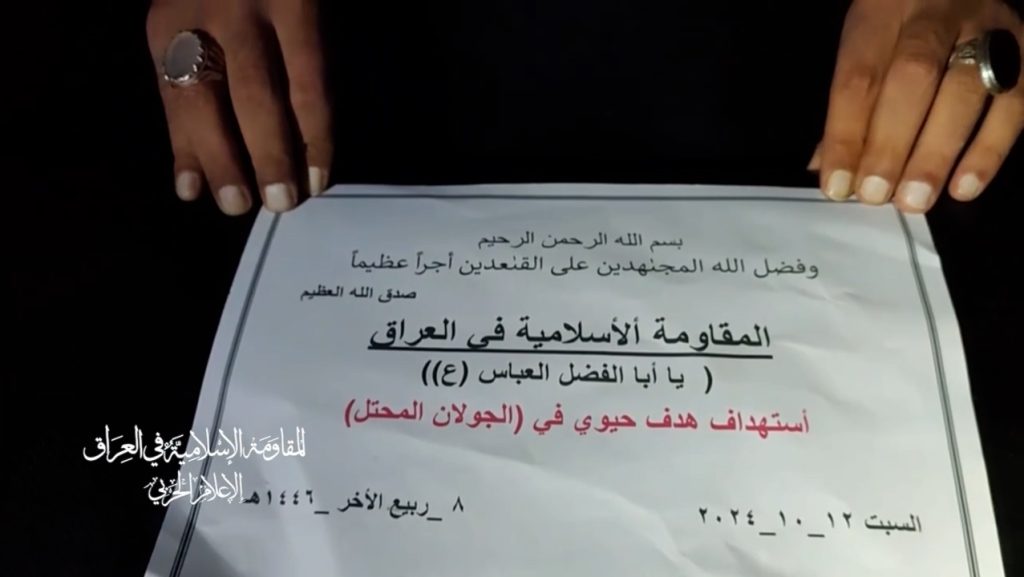 بسم الله الرحمن الرحيم
وفضل الله المجـٰهدين على القـٰعدين أجراً عظيماً
صدق الله العظيم
المقاومة ألأسلامية في العراق
( يا أبا الفضل العباس (ع))
أستهداف هدف حيوي في (الجولان المحتل)
السبت ١٢_١٠_٢٠٢٤
٨ _ربيع الأخر _١٤٤٦هـ
المقاومة الإسلامية في العراق
الإعلام الحربي